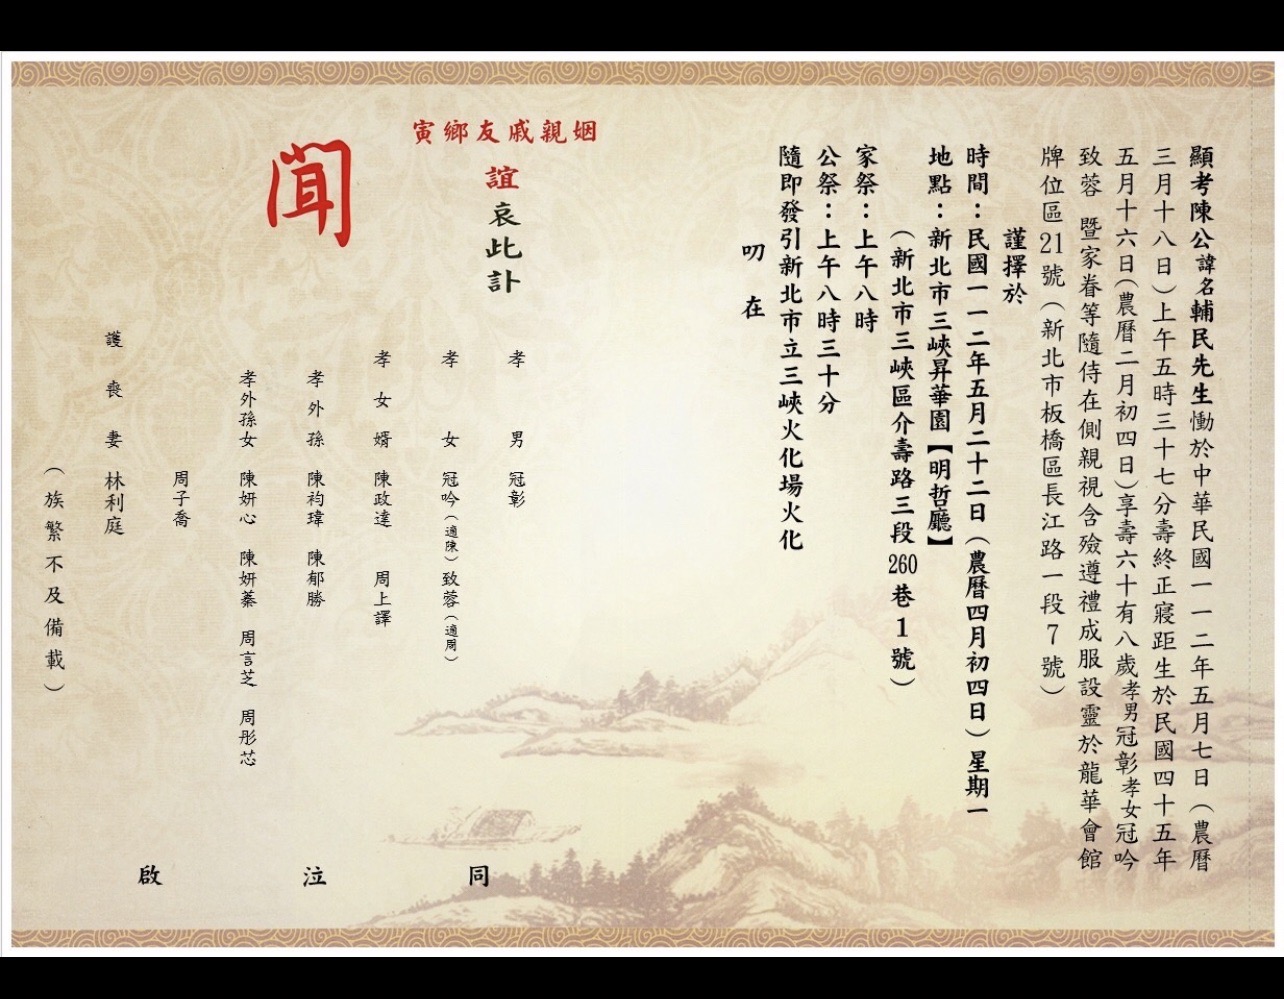 顯考陳公諱名輔民先生慟於中華民國一一二年五月七日（農曆
三月十八日）上午五時三十七分壽終正寢距生於民國四十五年
五月十六日（農曆二月初四日）享壽六十有八歲孝男冠彰孝女冠吟
致蓉 暨家眷等隨侍在側親視含殮遵禮成服設靈於龍華會館
牌位區21號（新北市板橋區長江路一段7號）
謹擇於
時間：民國一一二年五月二十二日（農曆四月初四日）星期一
地點：新北市三峽昇華園【明哲廳】
（新北市三峽區介壽路三段260巷1號）
家祭：上午八時
公祭：上午八時三十分
隨即發引新北市立三峽火化場火化
叨在
姻親戚友鄉寅
誼哀此訃
聞
孝男 冠彰
孝女 冠吟（適陳）致蓉（適周）
孝女婿 陳政達 周上譯
孝外孫 陳袀瑋 陳郁勝
孝外孫女 陳妍心 陳妍蓁 周言芝 周彤芯
周子喬
護喪妻 林利庭
（族繁不及備載）
同泣啟